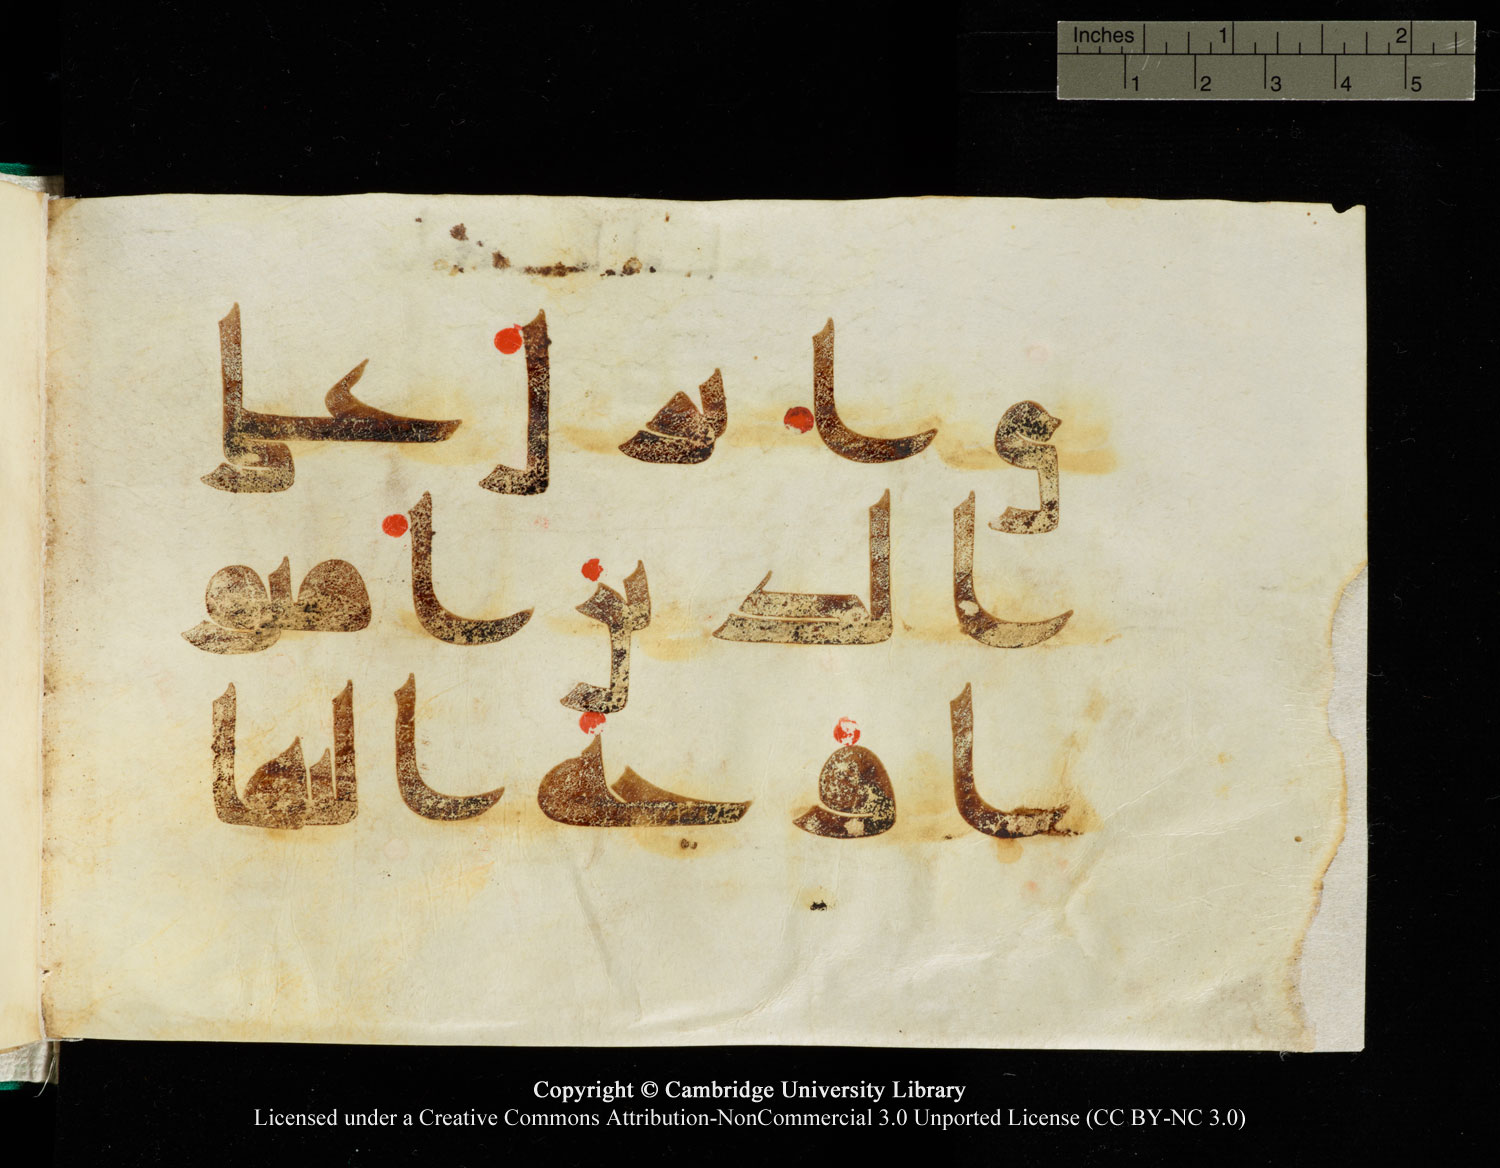 Inches 1 2
1 2 3 4 5
ى انزل على
الذين امنو
ا وجه النها
Copyright © Cambridge University Library
Licensed under a Creative Commons Attribution-NonCommercial 3.0 Unported License (CC BY-NC 3.0)